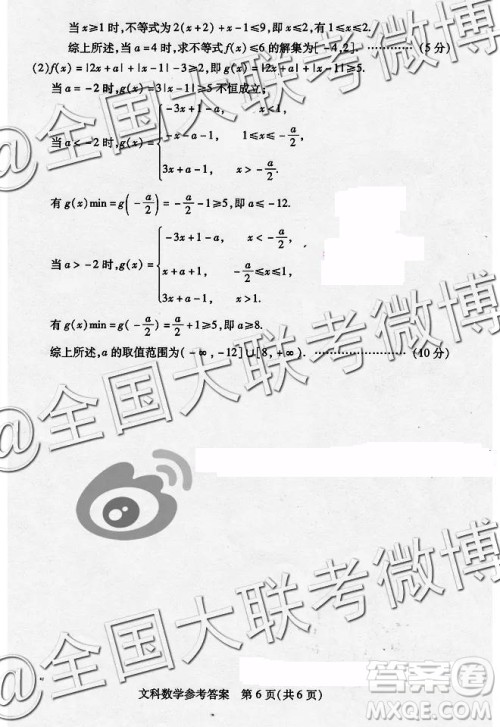 当 x≥1 时,不等式为 2(x+2)+x-1≤9,即 x≤2,有 1≤x≤2.
综上所述,当 a=4 时,求不等式 f(x)≤6 的解集为[-4,2]. ………… (5 分)
(2)f(x)=|2x+a|+|x-1|-3≥2,即 g(x)=|2x+a|+|x-1|≥5.
当 a=-2 时,g(x)=3|x-1|≥5 不恒成立;
当 a<-2 时,g(x)={ -3x+1-a, x<1,
-x-a-1, 1≤x≤-a/2
3x+a-1, x>-a/2.
有 g(x)min=g(-a/2)=-a/2-1≥5,即 a≤-12.
当 a>-2 时,g(x)={ -3x+1-a, x<-a/2,
x+a+1, -a/2≤x≤1,
3x+a-1, x>1.
有 g(x)min=g(-a/2)=a/2+1≥5,即 a≥8.
综上所述,a 的取值范围为(-∞,-12]∪[8,+∞). ………………… (10 分)
@全国大联考微博
@全国大联考微博
@全国大联考微博
文科数学参考答案 第 6 页(共 6 页)
答案圈